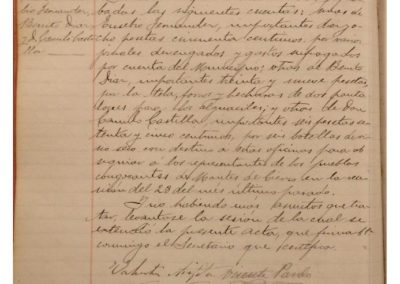 bio Fernandez,
Benito Diaz
y D. Camilo Castillo
badas las siguientes cuentas: una de
Eusebio Fernandez, importantes doze
ocho pesetas cincuenta centimos, por
devengados y gastos sufragados
por cuenta del Municipio; otras de Benito
Diaz, importantes treinta y nueve pesetas,
por la tela, forros y hechuras de dos panta
lones para los alguaciles; y otras de Don
Camilo Castillo, importantes seis pesetas se
tenta y cinco centimos, por seis botellas de vi
no seco con destino a estas oficinas para ob
sequiar a los representantes de los pueblos
congozantes de Montes de Cierzo en la reu
nion del 29 del mes ultimo pasado.
Y no habiendo mas asuntos que tra
tar, levantose la sesion de la cual se
extendio la presente Acta, que firman
conmigo el Secretario que certifico.
Valentin Vicente Pardo